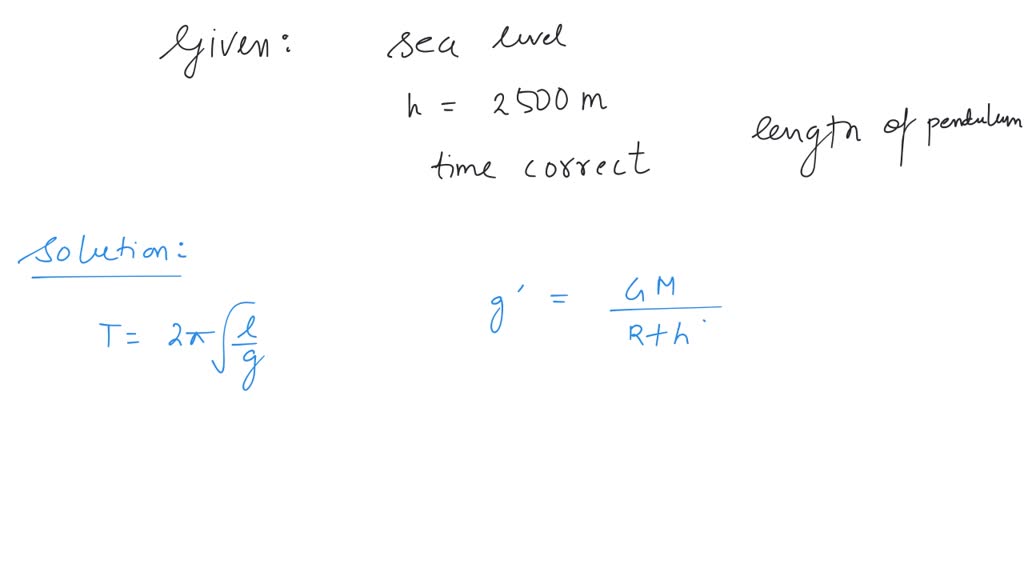 Given: sea level
h = 2500 m
time correct
length of pendulum
Solution:
T = 2π√(l/g)
g' = GM/(R+h)